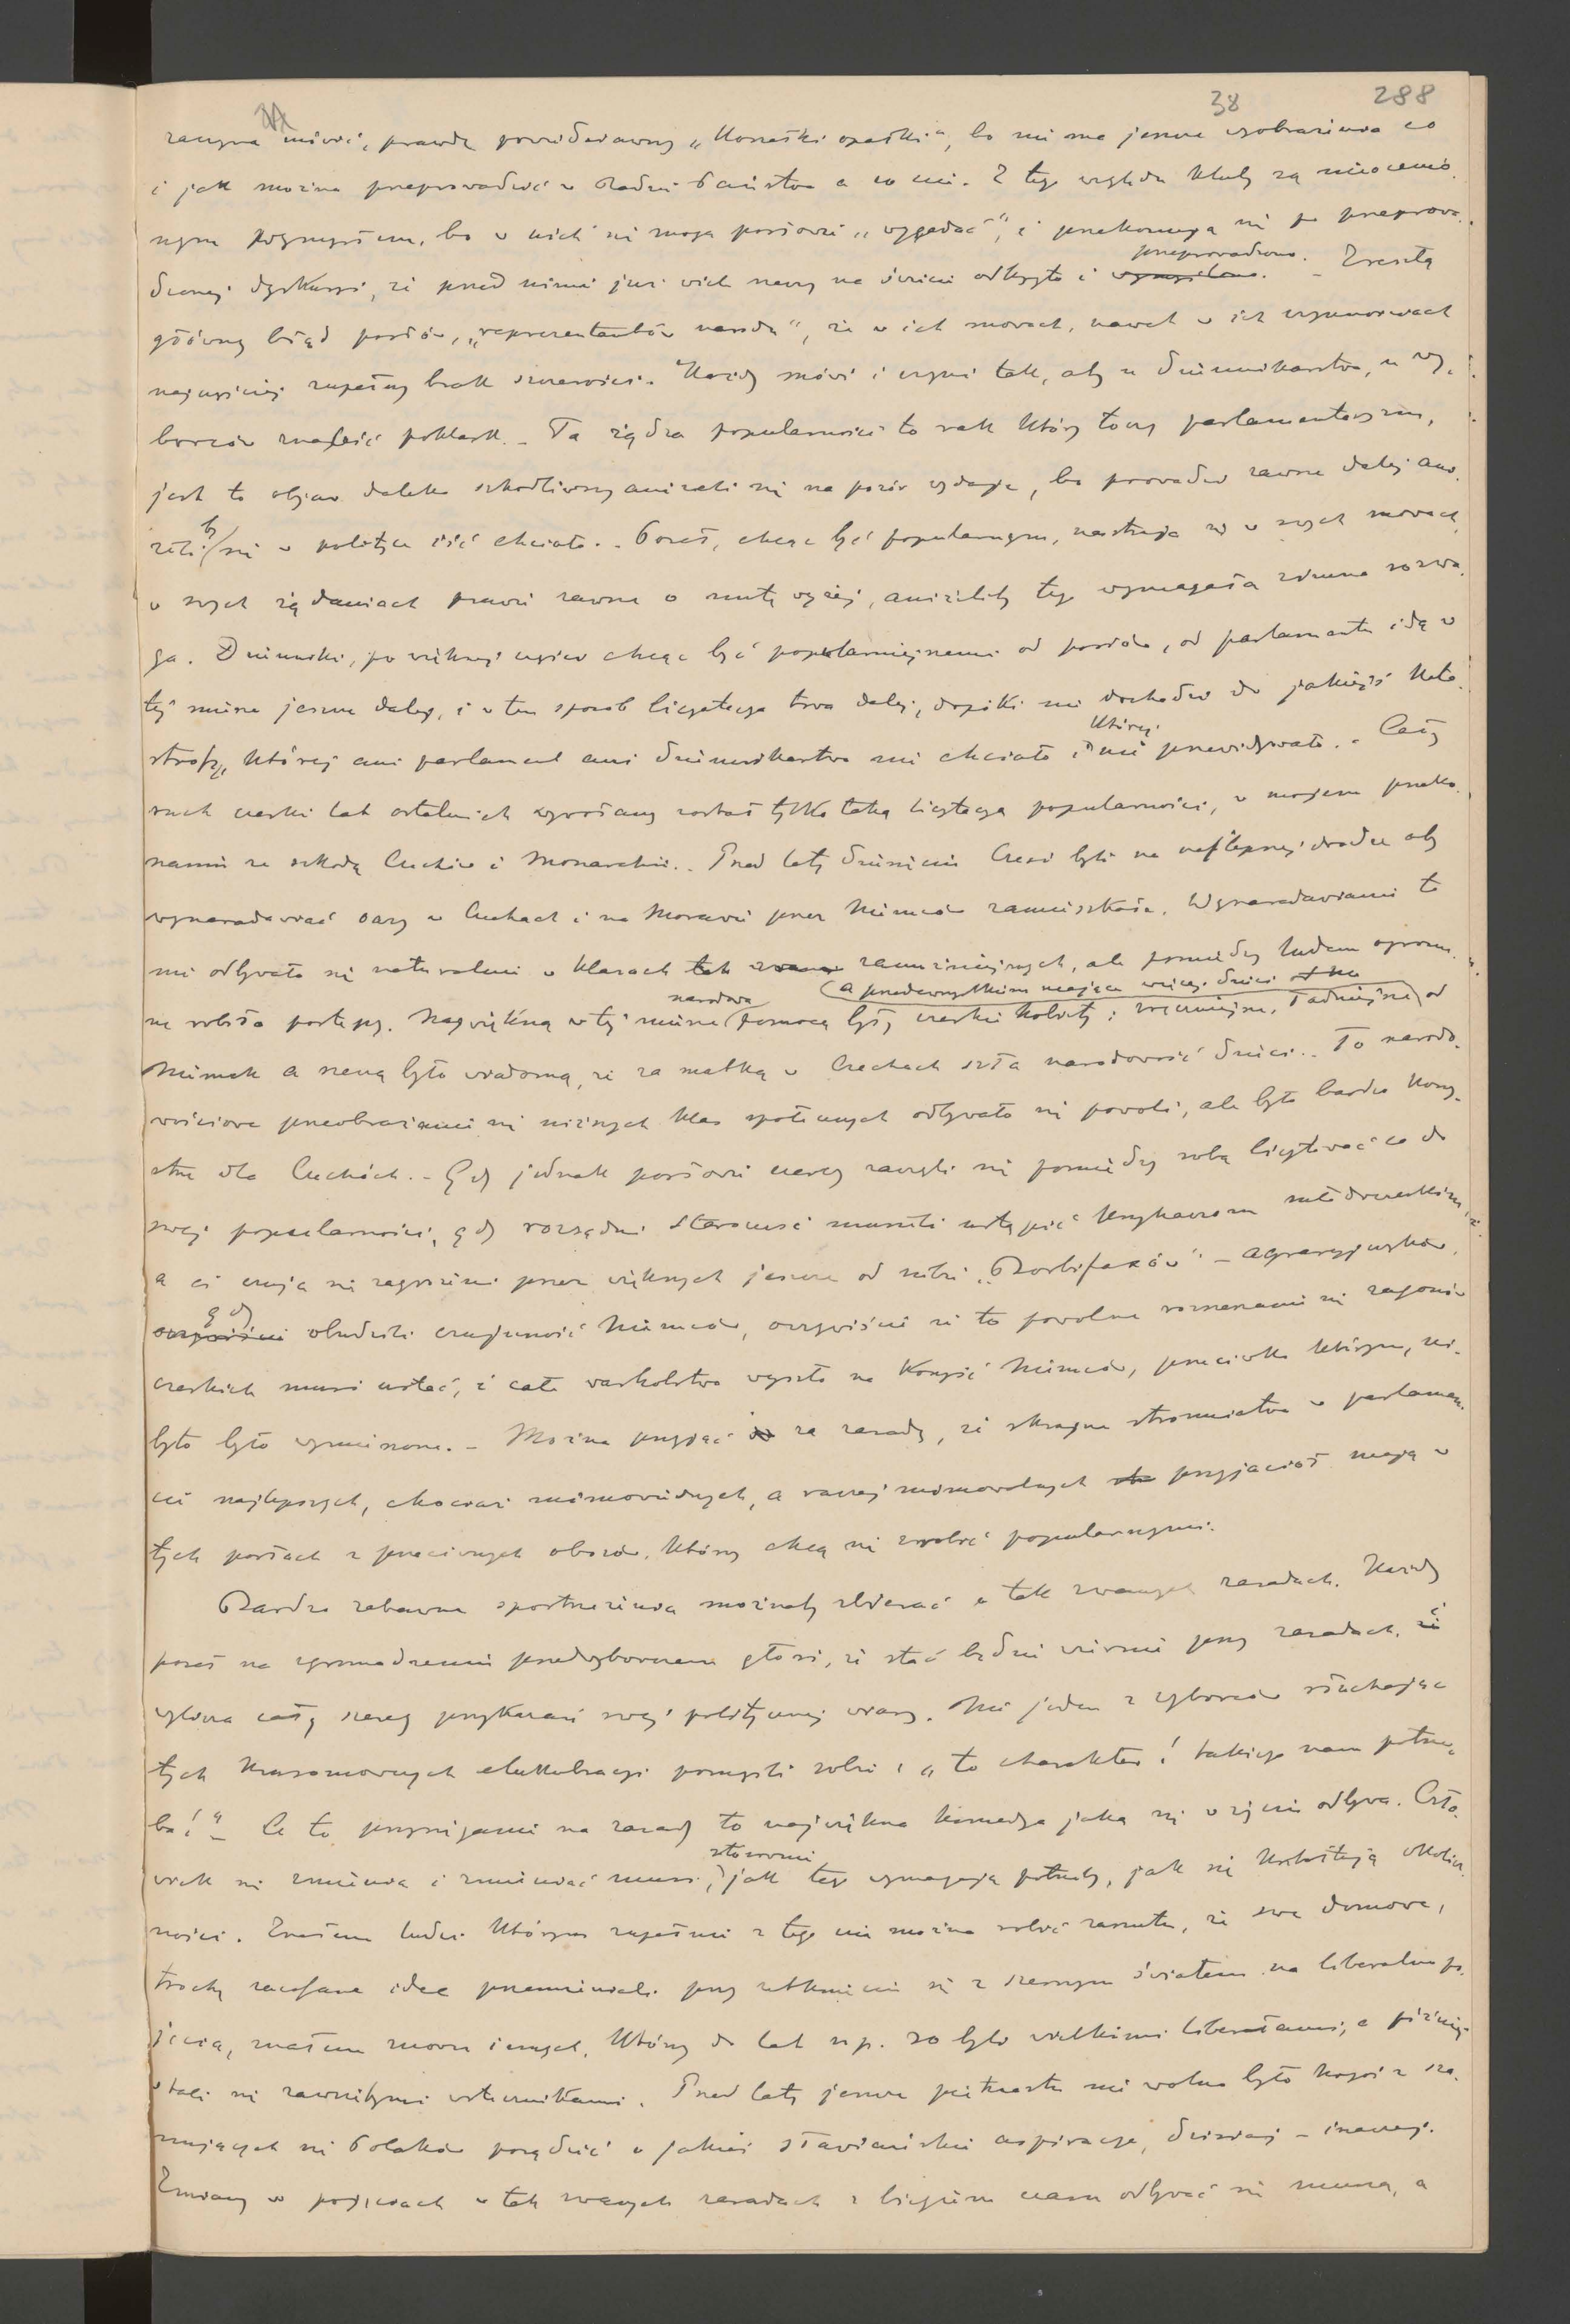 38 288
zaczyna mówić, prawdę powiedziawszy „Koszałki opałki", bo nie ma jeszcze wyobrażenia co
i jak można przeprowadzić w Radzie Państwa a co nie. Z tego względu kluby są nieocenio-
nym pomysłem, bo w nich się mogą posłowie „wygadać", i przekonują się po przeprowa-
dzonej dyskusyi, że przed nimi już wiele rzeczy na świecie odkryto i przeprowadzono. – Zresztą
główny błąd posłów, „reprezentantów narodu", że w ich mowach, nawet w ich czynnościach
najczęściej zupełny brak szczerości. Każdy mówi i czyni tak, aby u dziennikarstwa, u wy-
borców znaleść poklask. – Ta żądza popularności to rak który toczy parlamentaryzm,
jest to objaw daleko szkodliwszy aniżeli się na pozór wydaje, bo prowadzi zawsze dalej ani-
żeli by się w polityce iść chciało. – Poseł, chcąc być popularnym, nastraja się w swych mowach,
w swych żądaniach prawie zawsze o nutę wyżej, aniżeliby tego wymagała zdrowa rozwa-
ga. Dzienniki, po większej części chcąc być popularniejszemi od posłów, od parlamentu idą w
tej mierze jeszcze dalej, i w ten sposób licytacya trwa dalej, dopóki nie dochodzi do jakiejś kata-
strofy, której ani parlament ani dziennikarstwo nie chciało i której nie przewidywało. – Cały
ruch czeski lat ostatnich wywołany został tylko taką licytacyą popularności, w mojem przeko-
naniu ze szkodą Czechów i Monarchii. – Przed laty dziesięciu Czesi byli na najlepszej drodze aby
wynaradawiać oazy w Czechach i na Morawii przez Niemców zamieszkałe. Wynaradawianie to
nie odbywało się naturalnie w klasach zamożniejszych, ale pomiędzy ludem ogrom-
ne robiło postępy. Największą w tej mierze narodową pomocą były czeskie kobiety: zręczniejsze, ładniejsze, a przedewszystkiem mające więcej dzieci od
Niemek a rzeczą było wiadomą, że za matką w Czechach szła narodowość dzieci. – To narodo-
wościowe przeobrażenie się niższych klas społecznych odbywało się powoli, ale było bardzo korzy-
stne dla Czechów. – Gdy jednak posłowie czescy zaczęli się pomiędzy sobą licytować co do
swej popularności, gdy rozsądni Staroczesi musieli ustąpić krzykaczom młodoczeskim,
a ci czują się zagrożeni przez większych jeszcze od siebie – agraryuszów,
gdy obudzili czujność Niemców, oczywiście że to powolne rozszerzanie się zagonów
czeskich musi ustać, i całe warcholstwo wyszło na korzyść Niemców, przeciwko którym, ni-
byto było wymierzone. – Można przyjąć za zasadę, że skrajne stronnictwa w parlamen-
cie najlepszych, chociaż mimowiednych, a raczej mimowolnych przyjaciół mają w
tych posłach z przeciwnych obozów, którzy chcą się zrobić popularnymi.
Bardzo zabawne spostrzeżenia możnaby zbierać o tak zwanych zasadach. Każdy
poseł na zgromadzeniu przedwyborczem głosi, że stać będzie wiernie przy zasadach, i
wylicza cały szereg przykazań swej politycznej wiary. Nie jeden z wyborców słuchając
tych krasomówczych elukubracyi pomyśli sobie: „to charakter! takiego nam potrze-
ba!" – Co to przysięganie na zasady to największa komedya jaka się w życiu odbywa. Czło-
wiek się zmienia i zmieniać musi, stosownie jak tego wymagają potrzeby, jak się kształtują okolicz-
ności. Znałem ludzi którym zupełnie z tego nie można robić zarzutu, że swe domowe,
trochę zacofane idee przemieniali przy zetknięciu się z szerszym światem na liberalne po-
jęcia, znałem znowu innych, którzy do lat n.p. 30 byli wielkimi liberałami, a później
stali się zawziętymi wstecznikami. Przed laty jeszcze piętnastu nie wolno było kogoś z sza-
nujących się Polaków posądzić o jakieś sławiańskie aspiracye, dzisiaj – inaczej.
Zmiany w pojęciach w tak zwanych zasadach z biegiem czasu odbywać się muszą, a